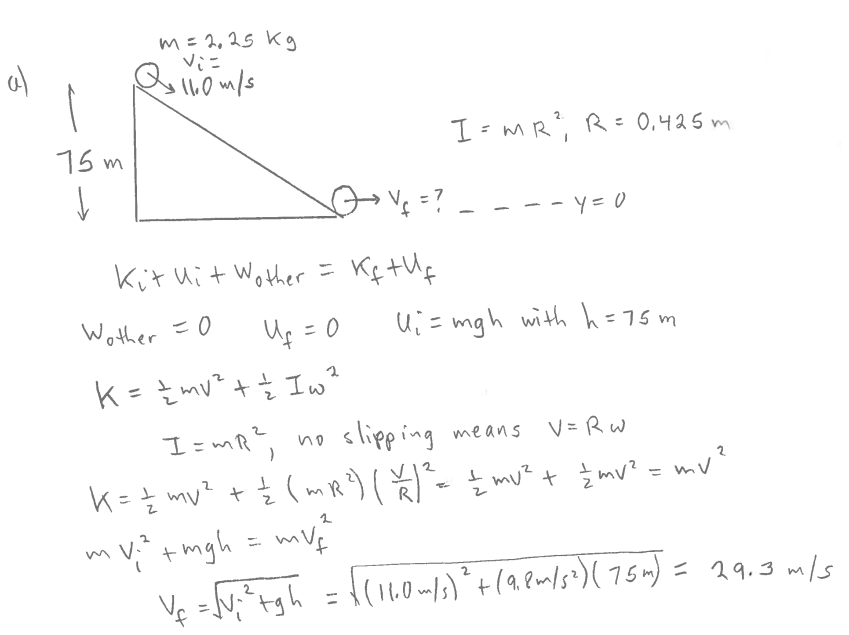 m = 2.25 Kg
a)
Vi =
11.0 m/s
I = mR², R = 0.425 m
75 m
Vf = ? _ _ _ _ _ y = 0
Ki + Ui + Wother = Kf + Uf
Wother = 0 Uf = 0 Ui = mgh with h = 75 m
K = ½ mv² + ½ Iω²
I = mR², no slipping means V = Rω
K = ½ mv² + ½ (mR²)(V/R)² = ½ mv² + ½ mv² = mv²
m Vi² + mgh = mVf²
Vf = √(Vi² + gh) = √((11.0 m/s)² + (9.8 m/s²)(75 m)) = 29.3 m/s